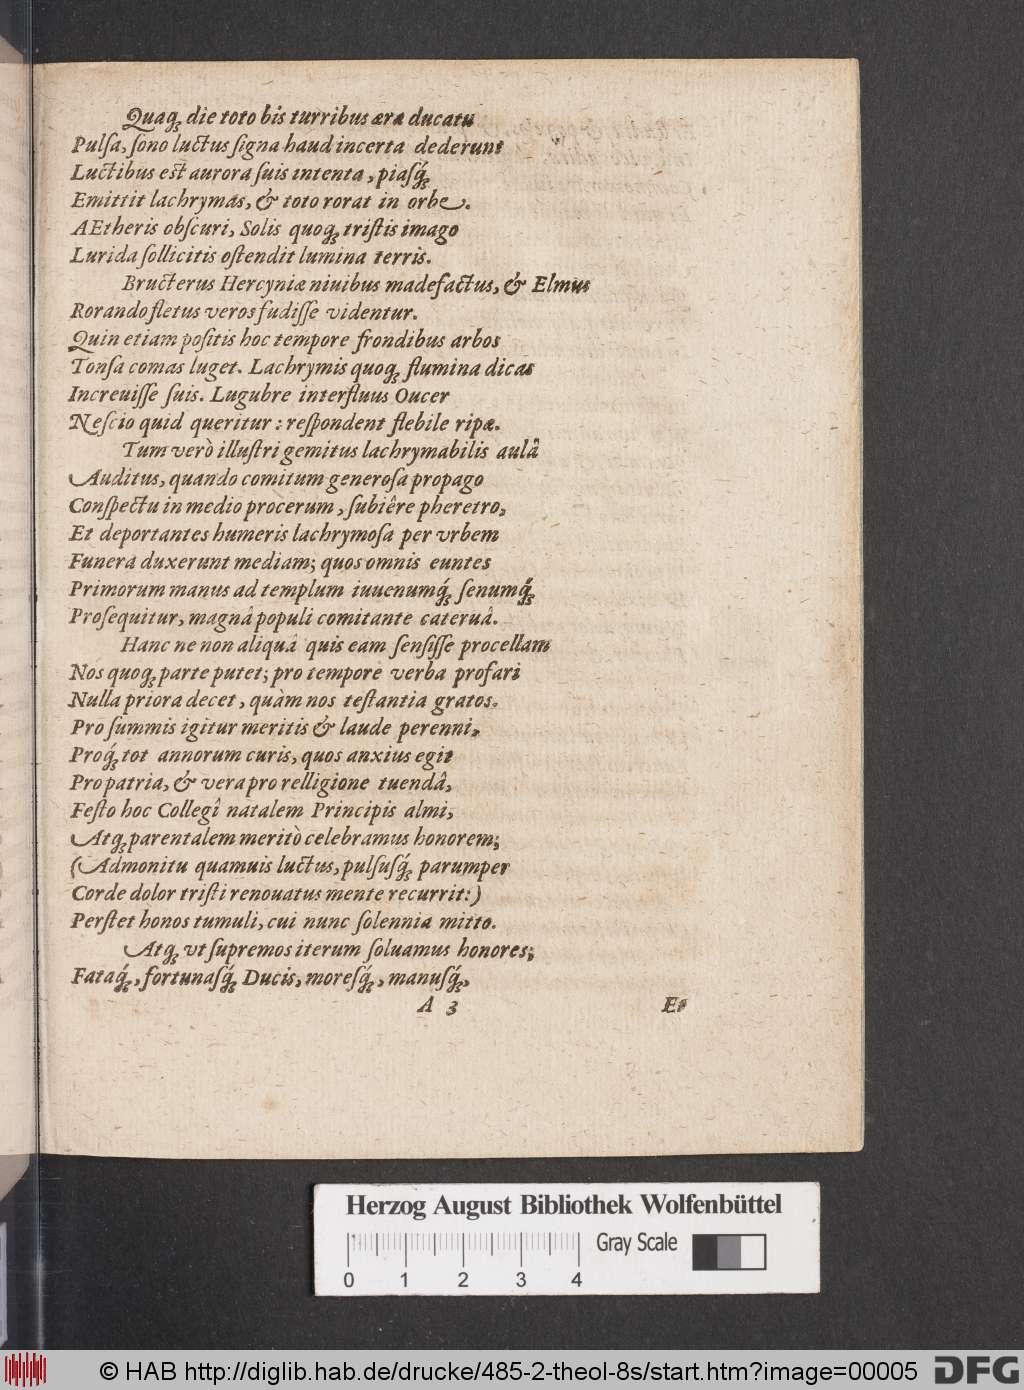 Quaq́ꝫ die toto bis turribus æra ducatu
Pulſa, ſono luctus ſigna haud incerta dederunt
Luctibus est aurora ſuis intenta, piaſq́ꝫ
Emittit lachrymas, & toto rorat in orbe.
AEtheris obſcuri, Solis quoqꝫ triſtis imago
Lurida ſollicitis oſtendit lumina terris.
Bructerus Hercyniæ niuibus madefactus, & Elmus
Rorando fletus veros fudiſſe videntur.
Quin etiam poſitis hoc tempore frondibus arbos
Tonſa comas luget. Lachrymis quoqꝫ flumina dicas
Increuiſſe ſuis. Lugubre interfluus Oucer
Neſcio quid queritur: reſpondent flebile ripæ.
Tum verò illuſtri gemitus lachrymabilis aulâ
Auditus, quando comitum generoſa propago
Conſpectu in medio procerum, ſubiêre pheretro,
Et deportantes humeris lachrymoſa per vrbem
Funera duxerunt mediam; quos omnis euntes
Primorum manus ad templum iuuenumq́ꝫ ſenumq́ꝫ
Proſequitur, magnâ populi comitante cateruâ.
Hanc ne non aliquâ quis eam ſenſiſſe procellam
Nos quoqꝫ parte putet; pro tempore verba profari
Nulla priora decet, quàm nos teſtantia gratos.
Pro ſummis igitur meritis & laude perenni,
Proq́ꝫ tot annorum curis, quos anxius egit
Pro patria, & vera pro relligione tuendâ,
Feſto hoc Collegî natalem Principis almi,
Atqꝫ parentalem meritò celebramus honorem;
(Admonitu quamuis luctus, pulſuſq́ꝫ parumper
Corde dolor triſti renouatus mente recurrit:)
Perſtet honos tumuli, cui nunc ſolennia mitto.
Atqꝫ vt ſupremos iterum ſoluamus honores;
Fataq́ꝫ, fortunaſq́ꝫ Ducis, moreſq́ꝫ, manuſq́ꝫ,
A 3 Et
Herzog August Bibliothek Wolfenbüttel
Gray Scale
0 1 2 3 4
© HAB http://diglib.hab.de/drucke/485-2-theol-8s/start.htm?image=00005 DFG